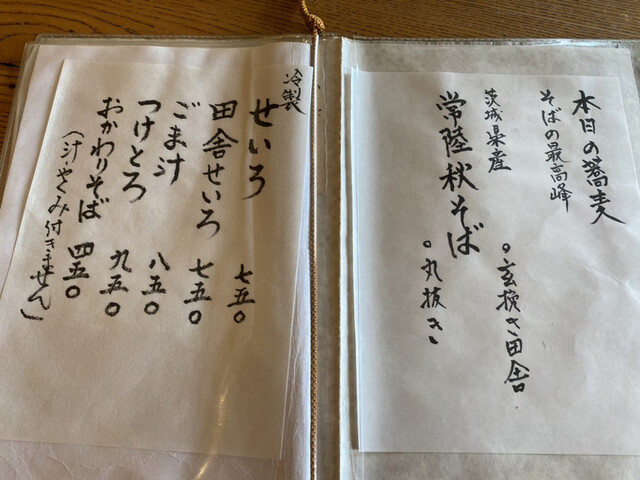 本日の蕎麦
そばの最高峰
茨城県産
常陸秋そば
。玄挽き田舎
。丸抜き
冷製
せいろ 七五〇
田舎せいろ 七五〇
ごま汁 八五〇
つけとろ 九五〇
おかわりそば 四五〇
(汁・やくみ付きません)